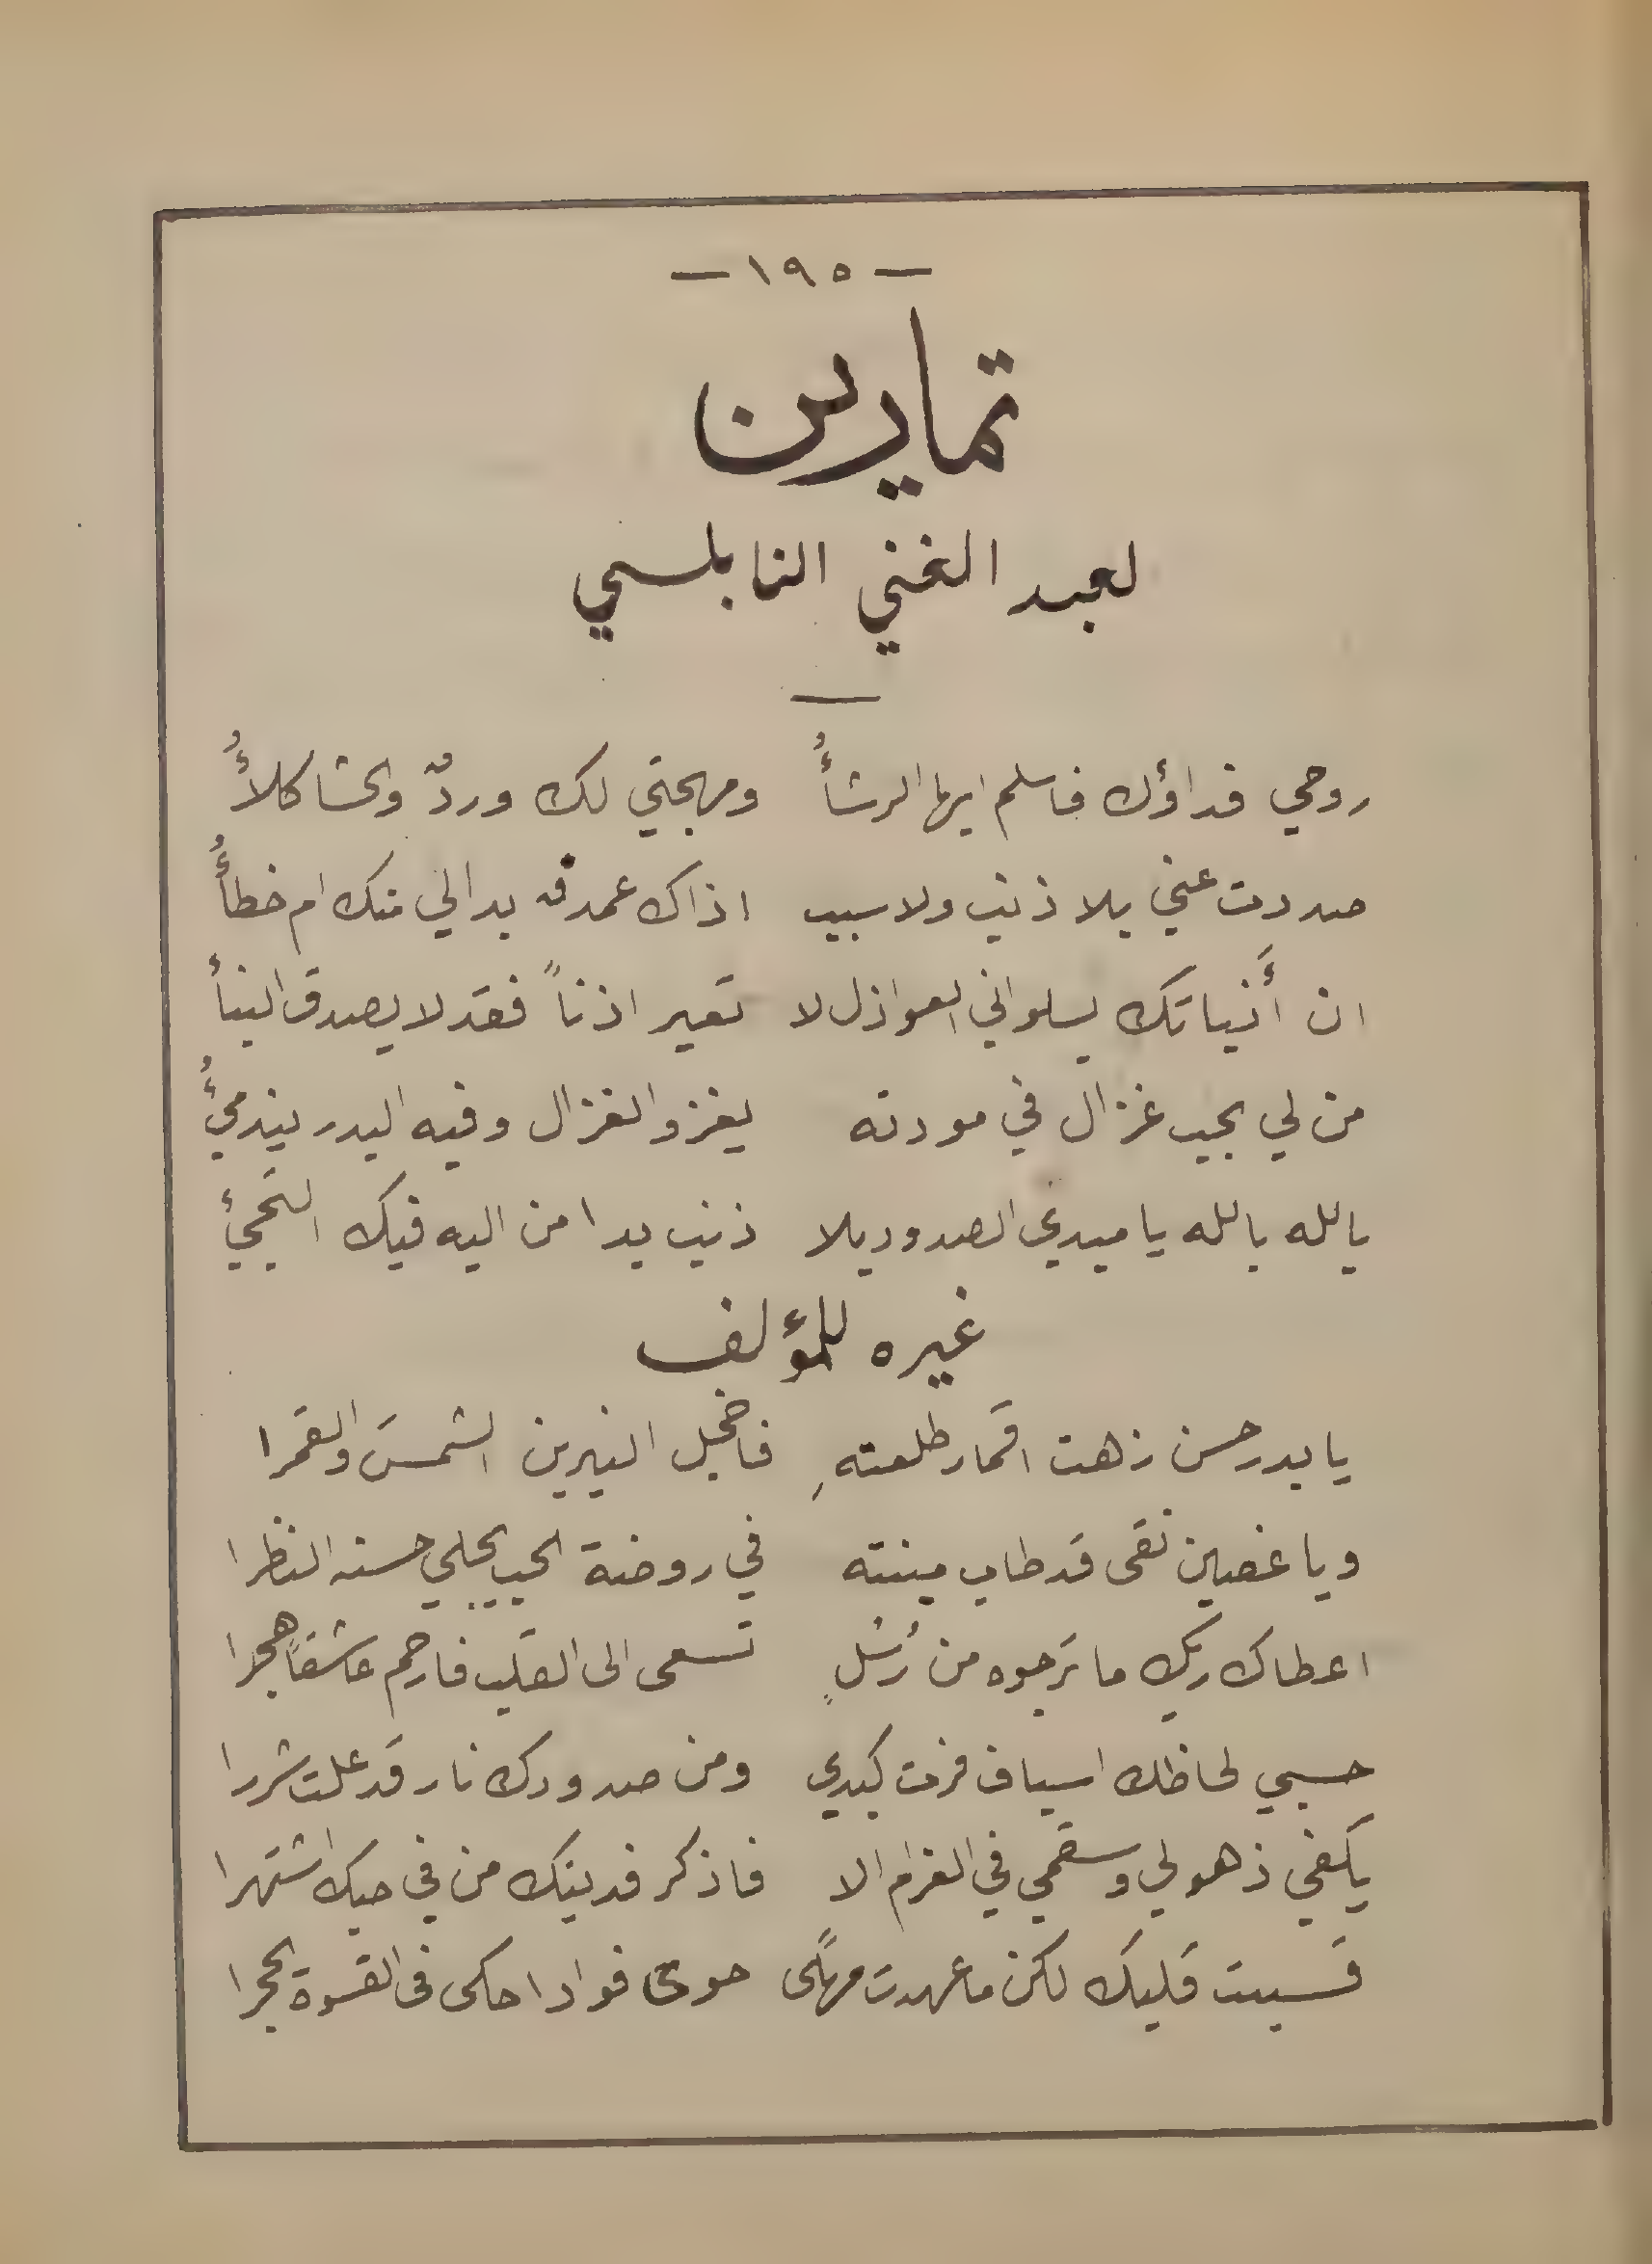 — ١٩٥ —
تمارين
لعبد الغني النابلسي
روحي فداؤك فاسلم ايها الرشأُ ومهجتي لك وردٌ والحشا كلأُ
صددت عني بلا ذنب ولا سبب اذاك عمد قد بدا لي منك ام خطأُ
ان أنبأتك بسلواني العواذل لا تعير اذناً فقد لا يصدق النبأ
من لي بجيب غزال في مودته يغزو الغزال وفيه البدر يندمئُ
بالله بالله يا مبدي الصدود بلا ذنب بدا من اليه فيك التجئ
غيره للمؤلف
يا بدر حسن زهت اقمار طلعتهِ فاخجل النيرين الشمسَ والقمرا
ويا غصين نقى قد طاب مبنته في روضة الحب يجلي حسنه النظرا
اعطاك ربك ما ترجوه من رُسُلٍ تسعى الى القلب فارحم عاشقاً هجرا
حسبي لحاظك اسياف فرت كبدي ومن صدودك نار قد علت شررا
يكفي ذهولي وسقمي في الغرام الا فاذكر فديتك من في حبك اشتهرا
قسيت قلبك لكن ما عهدت مهاًى حوى فوادا حكى فى القسوة الحجرا